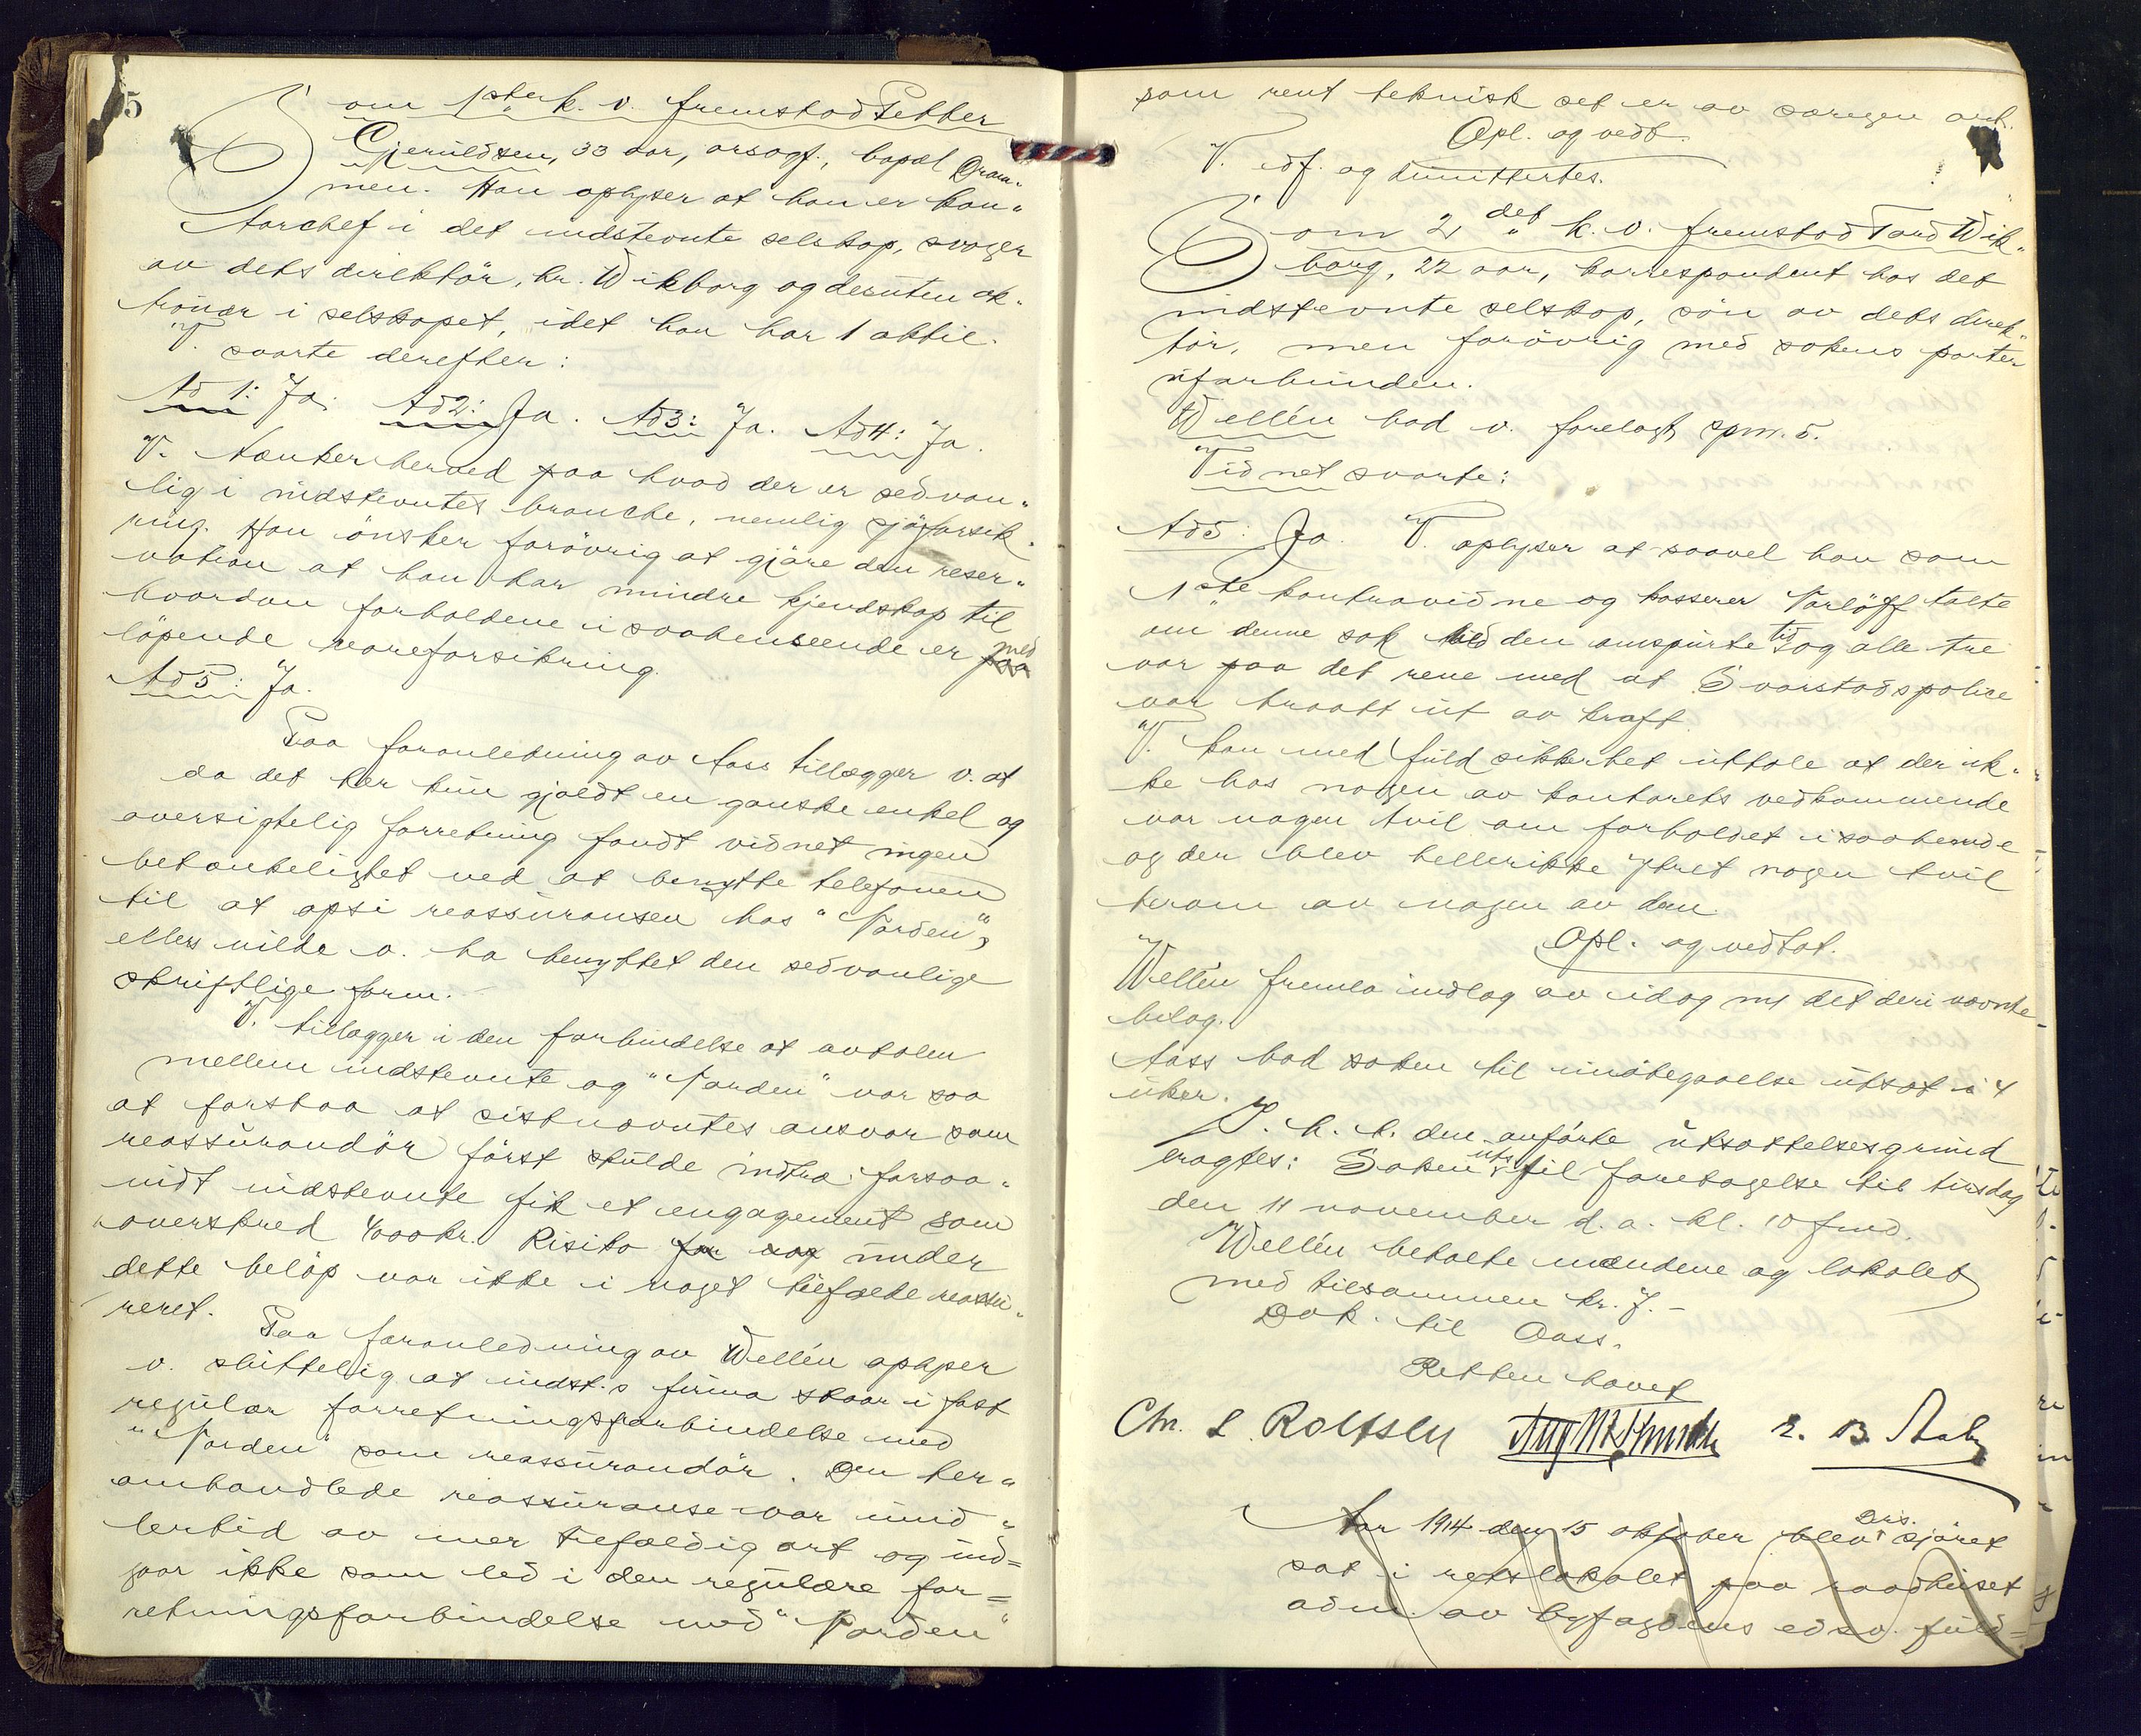 5
Som 1ste k. v. fremstod Petter
Gjeruldsen, 33 aar, ansagt, bopæl Dram-
men. Han oplyser at han er kon-
torchef i det indstevnte selskap, svoger
av dets direktör, hr. Wikborg og desuten ak-
tionær i selskapet, idet han har 1 aktie.
V. svarte derefter:
Ad 1: Ja. Ad 2: Ja. Ad 3: Ja. Ad 4: Ja.
V. tænker herved paa hvad der er sedvan-
lig i indstevntes branche, nemlig sjöforsik-
ring. Han önsker forövrig at gjöre den reser-
vation at han har mindre kjendskap til
hvordan forholdene i saahenseende er med
löpende vareforsikring.
Ad 5: Ja.
Paa foranledning av Aass tillægger v. at
da det her kun gjaldt en ganske enkel og
oversigtelig forretning fandt vidnet ingen
betænkelighet ved at benytte telefonen
til at opsi reassuransen hos "Norden",
ellers vilde v. ha benyttet den sedvanlige
skriftlige form.
V. tillægger i den forbindelse at avtalen
mellem indstevnte og "Norden" var saa
at forstaa at sistnævntes ansvar som
reassurandör först skulde indtræ forsaa-
vidt indstevnte fik et engagement som
overskred 4000 kr. Risiko under
dette belöp var ikke i noget tilfælde reassu-
reret.
Paa foranledning av Wellén oplyser
v. sluttelig at indst.s firma staar i fast
regulær forretningsforbindelse med
"Norden" som reassurandör. Den her-
omhandlede reassuranse var imid-
lertid av mer tilfældig art og ind-
gaar ikke som led i den regulære for-
retningsforbindelse med "Norden"
som rent teknisk set er av særegen art.
Opl. og vedt.
V. edf. og dimittertes.
Som 2det k. v. fremstod Tard Wik-
borg, 22 aar, korrespondent hos det
indstevnte selskap, sön av dets direk-
tör, men forövrig med sakens parter
uforbunden.
Wellén bad v. forelagt spm. 5.
Vidnet svarte:
Ad 5: Ja. V. oplyser at saavel han som
1ste kontravidne og kasserer Narlöff talte
om denne sak ved den omspurte tid og alle tre
var paa det rene med at Svarstadspolice
var traatt ut av kraft.
V. kan med fuld sikkerhet uttale at der ik-
ke hos nogen av kontorets vedkommende
var nogen tvil om forholdet i saahenseende
og der blev hellerikke ytret nogen tvil
herom av nogen av dem.
Opl. og vedtat.
Wellén fremla indlæg av idag m det deri nævnte
bilag.
Aass bad saken til imötegaaelse utsat i 4
uker.
I. h. t. den anförte utsættelsesgrund
eragtes: Saken uts. til foretagelse til tirsdag
den 11 november d. a. kl. 10 fmd.
Wellén betalte mændene og lokalet
med tilsammen kr. 7.-
Dok. til Aass.
Retten hævet
Chr. L. Rolfsen Aug M Schmidt E. B. Aaby
Aar 1914 den 15 oktober blev Drs. sjöret
sat i retslokalet paa raadhuset
adm. av byfogdens edsv. fuld-